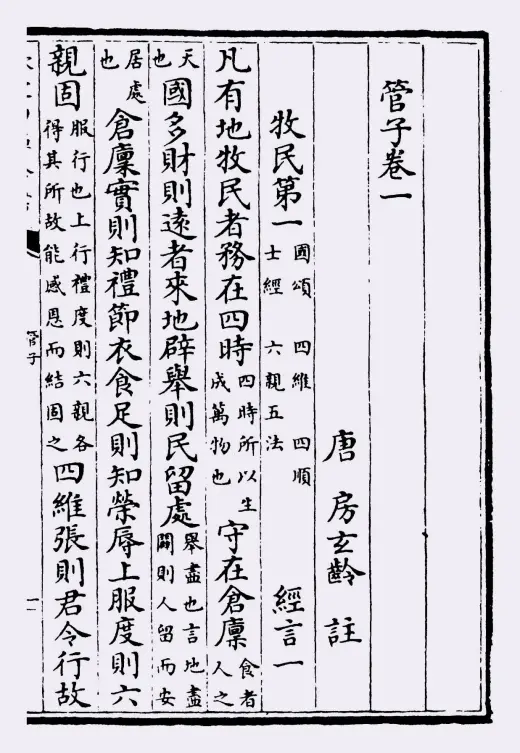 管子卷一
唐 房玄齡 註
牧民第一 國頌 四維 四順 士經 六親五法 經言一
凡有地牧民者務在四時 四時所以生成萬物也 守在倉廩 食者人之
天也 國多財則遠者來地辟舉則民留處 舉盡也言地盡闢則人留而安
居處也 倉廩實則知禮節衣食足則知榮辱上服度則六
親固 服行也上行禮度則六親各得其所故能感恩而結固之 四維張則君令行故
管子
一